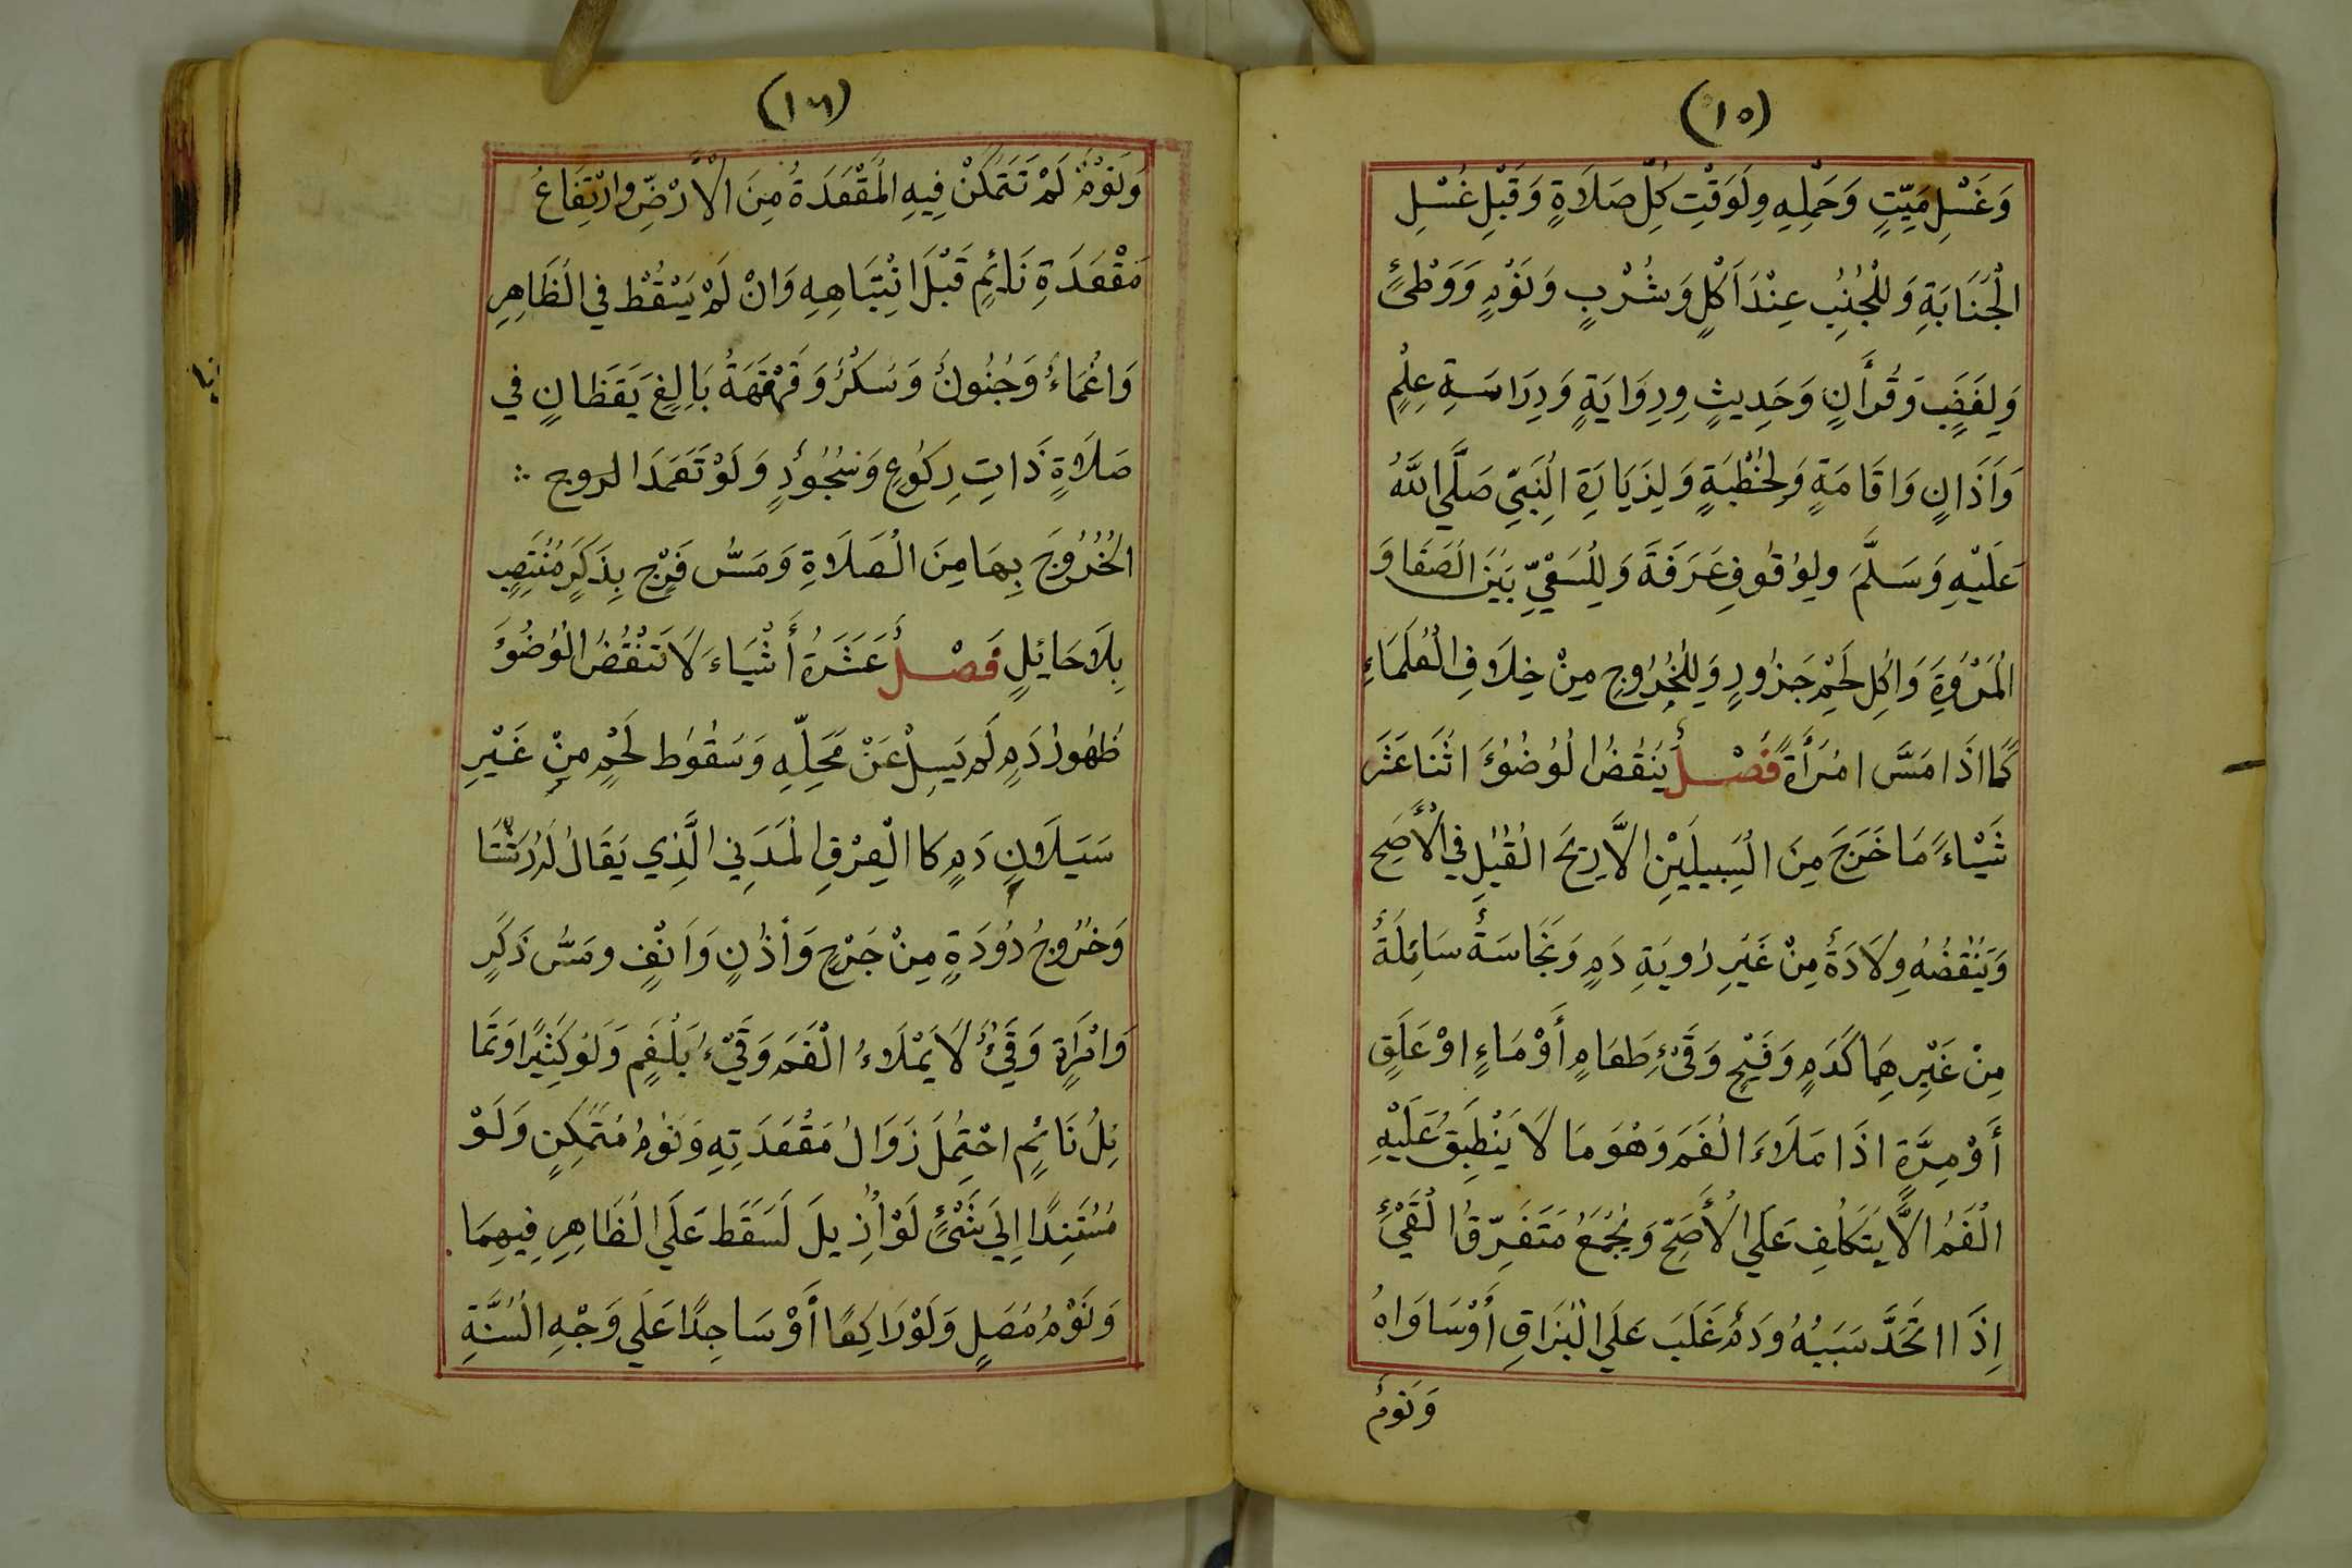 (١٥)
وَغَسْلِ مَيِّتٍ وَحَمْلِهِ وَلِوَقْتِ كُلِّ صَلَاةٍ وَقَبْلِ غُسْلِ
الْجَنَابَةِ وَلِلْجُنُبِ عِنْدَ اَكْلٍ وَشُرْبٍ وَنَوْمٍ وَوَطْئٍ
وَلِغَضَبٍ وَقُرأَنٍ وَحَدِيثٍ وِرِوَايَةٍ وَدِرَاسَةِ عِلْمٍ
وَاَذَانٍ وَاقَامَةٍ وَلِخُطْبَةٍ وَلِزِيَارَةِ النَبِيِّ صَلَّي اللَّهُ
عَلَيْهِ وَسَلَّمَ ولِوُقُوفِ عَرَفَةَ وَلِلْسَعْيِّ بَيْنَ الصَفَا وَ
الْمَرْوَةِ وَاكْلِ لَحْمِ جَزُورٍ وَلِلْخُرُوجِ مِنْ خِلَافِ الْعُلَمَاءِ
كَمَا اذَا مَسَّ امْرَأَةً فَصْلٌ يَنْقُضُ الْوُضُوْءَ اثْنَا عَشَرَ
شَيْاءً مَا خَرَجَ مِنَ السَبِيلَيْنِ الاَّ رِيحَ الْقُبُلِ فِي الْأَصَحِّ
وَيَنْقُضُهُ وِلَادَةٌ مِنْ غَيْرِ رُاويَةِ دَمٍ وَنَجَاسَةٌ سَائِلَةٌ
مِنْ غَيْرِهِمَا كَدَمٍ وَقَيْحٍ وَقَئِ طَعَامٍ أَوْ مَاءٍ اوْ عَلَقٍ
أَوْ مِرَّةٍ اذَا مَلَاءَ الْفَمَ وَهُوَ مَا لَا يَنْطَبِقُ عَلَيْهِ
الْفَمُ الاَّ بِتَكَلُّفِ عَلَي الْأَصَحِّ وَيُجْمَعُ مَتَفَرِّقُ الْقَيْئِ
اِذَا اتَّحَدَّ سَبَبُهُ وَدَمٌ غَلَبَ عَلَي الْبُزَاقِ أَوْ سَاوَاهُ
وَنَومٌ
(١٦)
وَنَوْمٌ لَمْ تَتَمَكَّنْ فِيهِ الْمَقْعَدَةُ مِنَ الْأَرْضِّ وارْتِفَاعُ
مَقْعَدَةِ نَائِمٍ قَبْلَ انْتِبَاهِهِ وَانْ لَمْ يَسْقُطْ فِي الْظَاهِرِ
وَاغْمَاءٌ وَجُنُونٌ وَسَكْرٌ وَقَهْقَهَةُ بَالِغٍ يَقَظَانٍ فِي
صَلَاةٍ ذَاتِ رِكُوعٍ وَسُجُوْدٍ وَلَوْ تَعَمَدَ الروج
الْخُرُوجَ بِهَا مِنَ الْصَلَاةِ وَمَسُّ فَرْجٍ بِذَكَرٍ مُنْتَصِبٍ
بِلَا حَائِلٍ فَصْلٌ عَشَرَةُ أَشْيَاءَ لَا تَنْقُضُ الْوُضُوْءَ
ظُهُورُ دَمٍ لَمْ يَسِلْ عَنْ مَحَلِّهِ وَسُقُوطُ لَحْمٍ مِنْ غَيْرِ
سَيَلَانِ دَمٍ كا الْعِرْقِ الْمَدَنِي الَّذِي يَقَالُ لَهُ رَشْتَا
وَخُرُوجُ دُوْدَةٍ مِنْ جَرْحٍ وَأذُنٍ وَاَنْفٍ ومَسُّ ذَكَرٍ
وَامْرَاَةٍ وَقَيْئٌ لَا يَمْلَاءُ الْفَمَ وَقَيْءُ بَلْغَمٍ وَلَوْ كَثِيرًا وَتَمَا
يُلُ نَائِمٍ احْتِمُلَ زَوَالُ مَقْعَدَتِهِ وَنَوْمُ مُتَمَكِّنٍ وَلَوْ
مُسْتَنِدًا اِلَي شَيْئٍ لَوْ اُزِيلَ لَسَقَطَ عَلَي الْظَاهِرِ فِيهِمَا
وَنَوْمُ مُصَلٍ وَلَوْ رَاكِعًا أَوْ سَاجِدًا عَلَي وَجْهِ الْسُنَّةِ